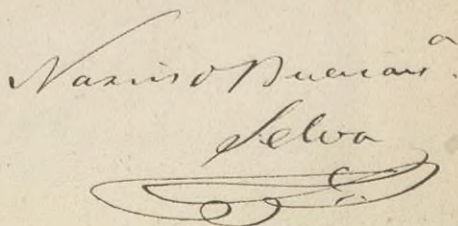 Narciso Buenavᵃ.
Selva